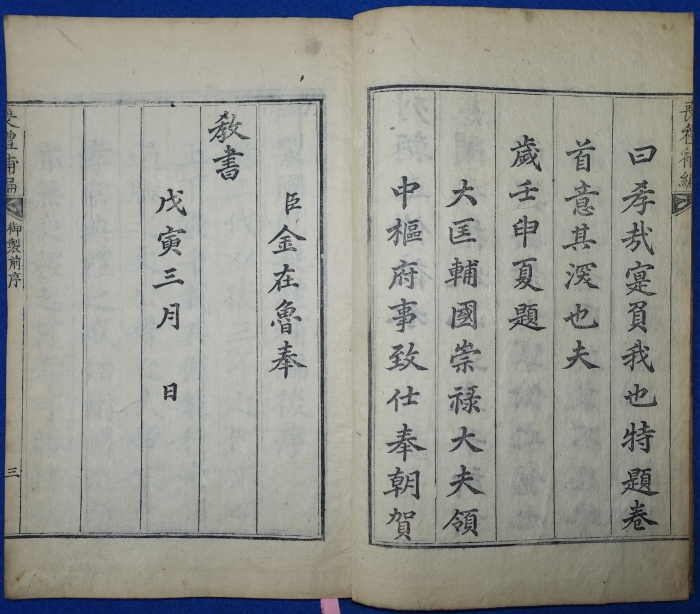 曰孝哉寔負我也特題卷
首意其深也夫
歲壬申夏題
大匡輔國崇祿大夫領
中樞府事致仕奉朝賀
臣金在魯奉
教書
戊寅三月　日
喪禮補編　御製前序　三